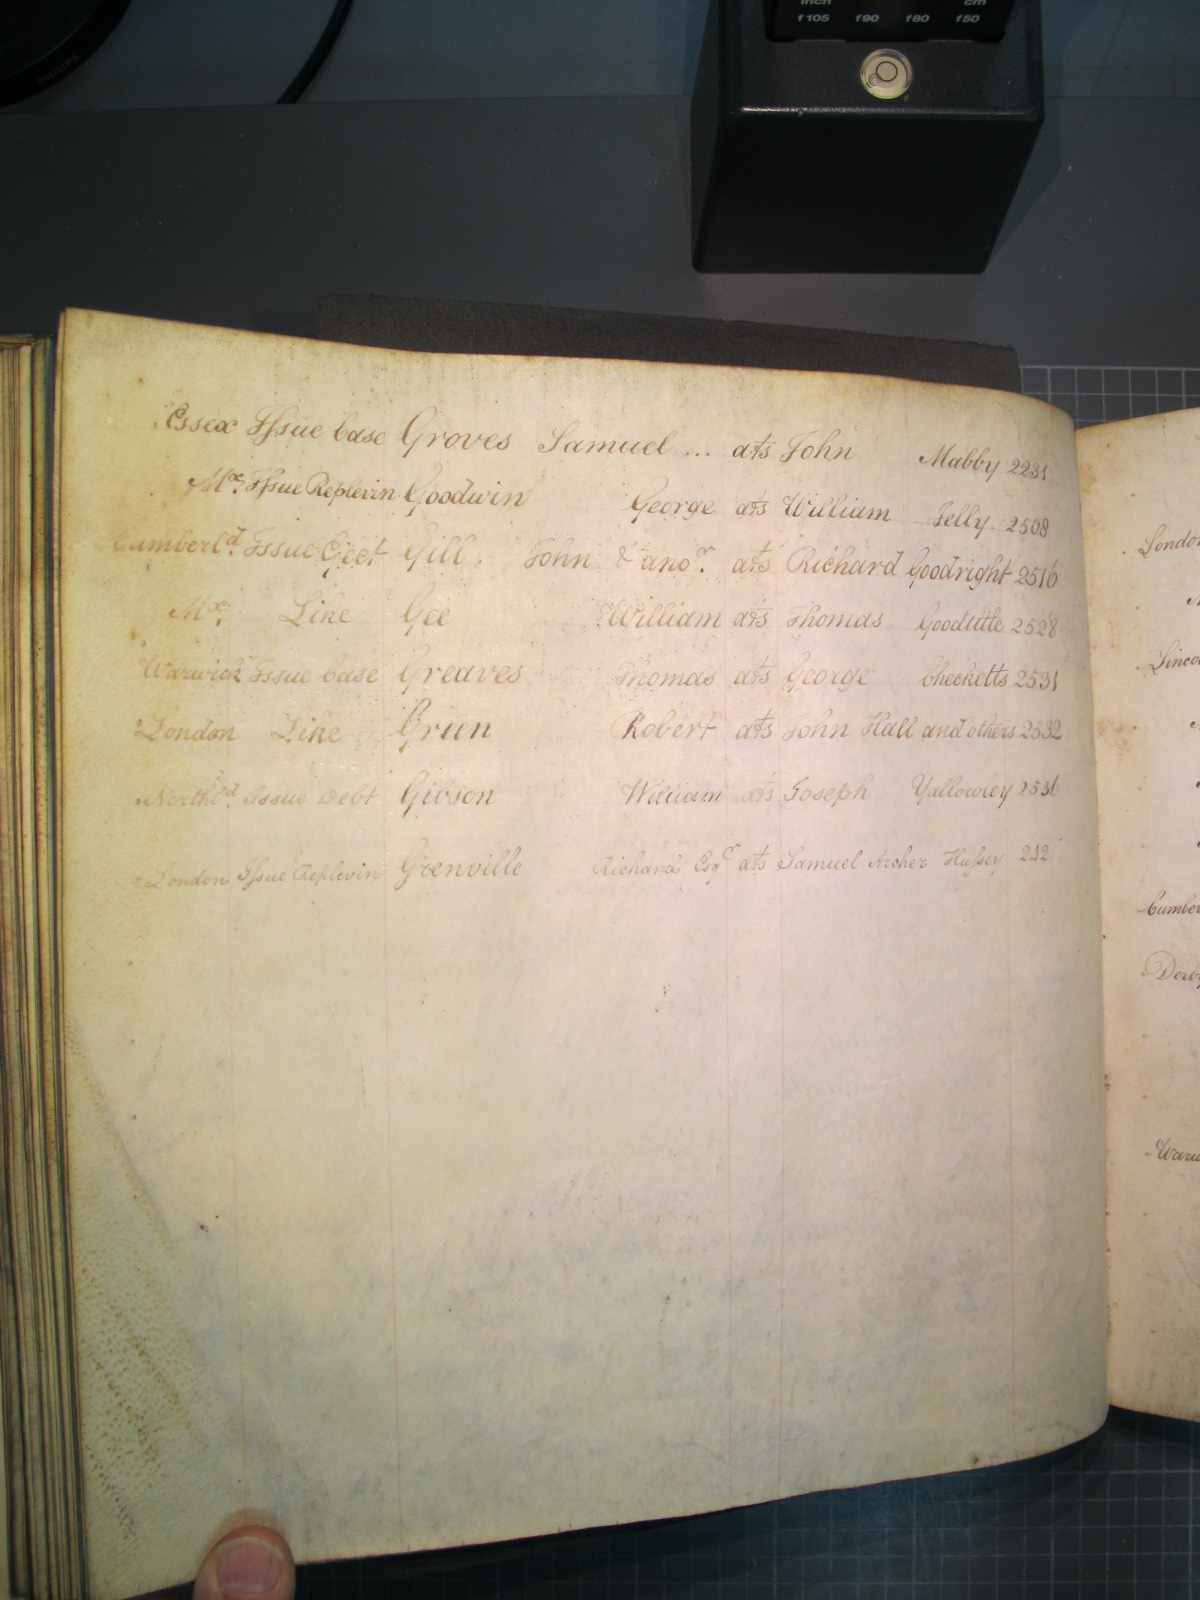 inch cm
f105 f90 f80 f50
PHILIPS
Essex Issue Case Groves Samuel ... ats John Mabby 2231
Mx. Issue Replevin Goodwin George ats William Jelly 2508
Cumberld. Issue Eject Gill John & anor. ats Richard Goodright 2516
Mx. Like Gee William ats Thomas Goodtitle 2528
Warwick Issue Case Greaves Thomas ats George Checketts 2531
London Like Green Robert ats John Hall and others 2532
Northld. Issue Debt Gibson William ats Joseph Yallowley
London Issue Replevin Grenville Richard Esqr ats Samuel Archer Hussey 242
London
Lincol
Cumber
Derby
Warw